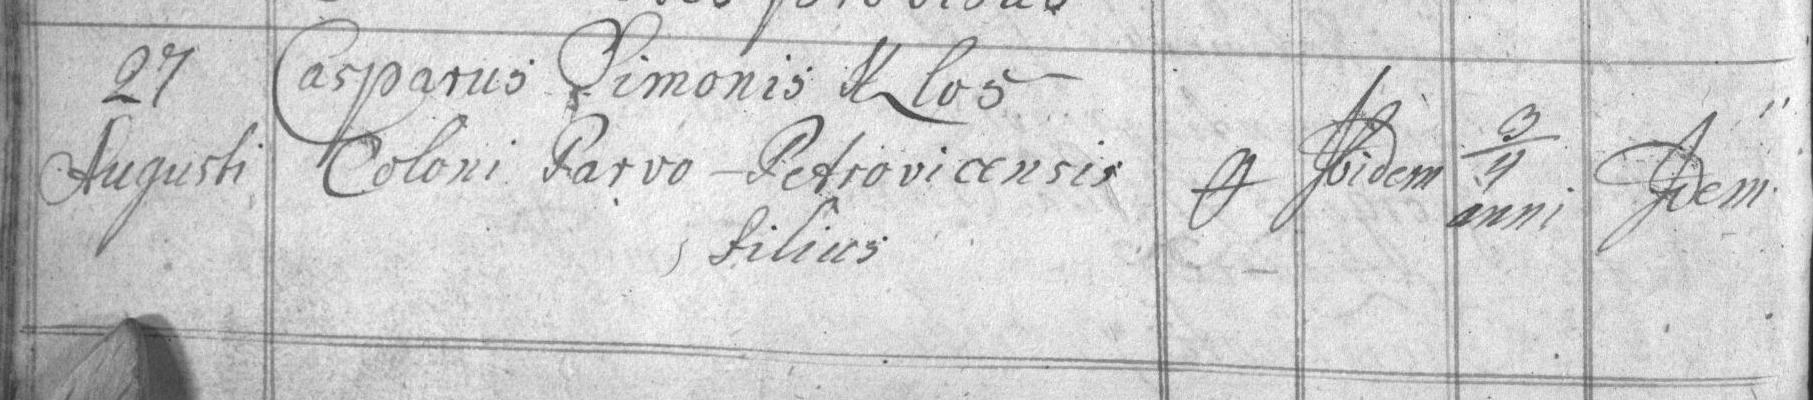 27 Augusti
Casparus Simonis Klos
Coloni Parvo-Petrovicensis
filius
Ibidem
3/4 anni
Idem